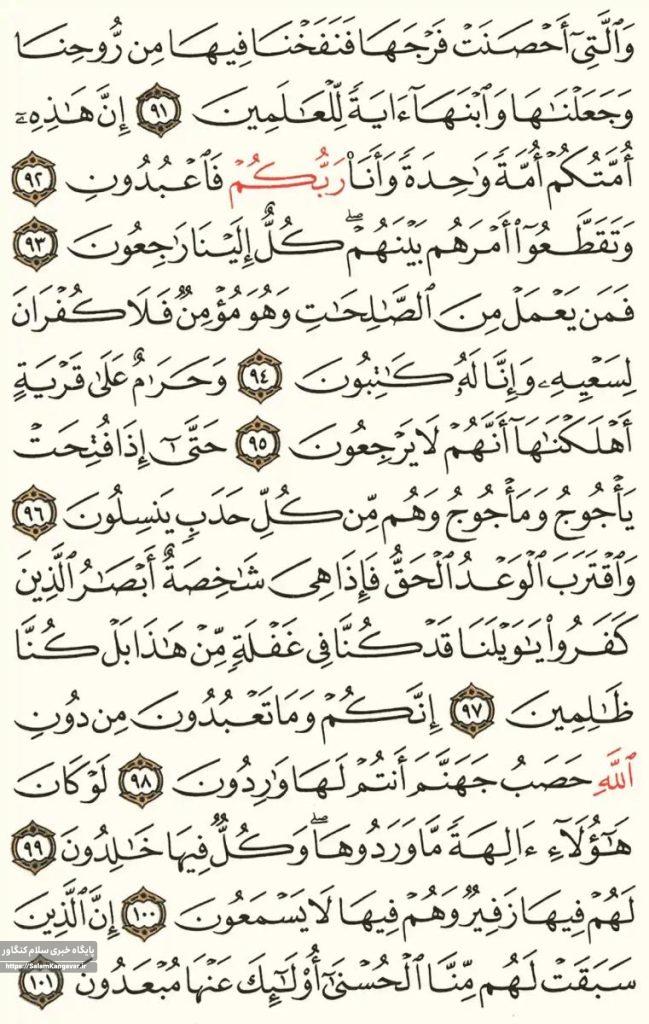 وَٱلَّتِىٓ أَحْصَنَتْ فَرْجَهَا فَنَفَخْنَا فِيهَا مِن رُّوحِنَا
وَجَعَلْنَـٰهَا وَٱبْنَهَآ ءَايَةً لِّلْعَـٰلَمِينَ ٩١ إِنَّ هَـٰذِهِۦٓ
أُمَّتُكُمْ أُمَّةً وَٰحِدَةً وَأَنَا۠ رَبُّكُمْ فَٱعْبُدُونِ ٩٢
وَتَقَطَّعُوٓا۟ أَمْرَهُم بَيْنَهُمْ ۖ كُلٌّ إِلَيْنَا رَٰجِعُونَ ٩٣
فَمَن يَعْمَلْ مِنَ ٱلصَّـٰلِحَـٰتِ وَهُوَ مُؤْمِنٌ فَلَا كُفْرَانَ
لِسَعْيِهِۦ وَإِنَّا لَهُۥ كَـٰتِبُونَ ٩٤ وَحَرَٰمٌ عَلَىٰ قَرْيَةٍ
أَهْلَكْنَـٰهَآ أَنَّهُمْ لَا يَرْجِعُونَ ٩٥ حَتَّىٰٓ إِذَا فُتِحَتْ
يَأْجُوجُ وَمَأْجُوجُ وَهُم مِّن كُلِّ حَدَبٍ يَنسِلُونَ ٩٦
وَٱقْتَرَبَ ٱلْوَعْدُ ٱلْحَقُّ فَإِذَا هِىَ شَـٰخِصَةٌ أَبْصَـٰرُ ٱلَّذِينَ
كَفَرُوا۟ يَـٰوَيْلَنَا قَدْ كُنَّا فِى غَفْلَةٍ مِّنْ هَـٰذَا بَلْ كُنَّا
ظَـٰلِمِينَ ٩٧ إِنَّكُمْ وَمَا تَعْبُدُونَ مِن دُونِ
ٱللَّهِ حَصَبُ جَهَنَّمَ أَنتُمْ لَهَا وَٰرِدُونَ ٩٨ لَوْ كَانَ
هَـٰٓؤُلَآءِ ءَالِهَةً مَّا وَرَدُوهَا ۖ وَكُلٌّ فِيهَا خَـٰلِدُونَ ٩٩
لَهُمْ فِيهَا زَفِيرٌ وَهُمْ فِيهَا لَا يَسْمَعُونَ ١٠٠ إِنَّ ٱلَّذِينَ
سَبَقَتْ لَهُم مِّنَّا ٱلْحُسْنَىٰٓ أُو۟لَـٰٓئِكَ عَنْهَا مُبْعَدُونَ ١٠١
پایگاه خبری سلام کنگاور
https://SalamKangavar.ir